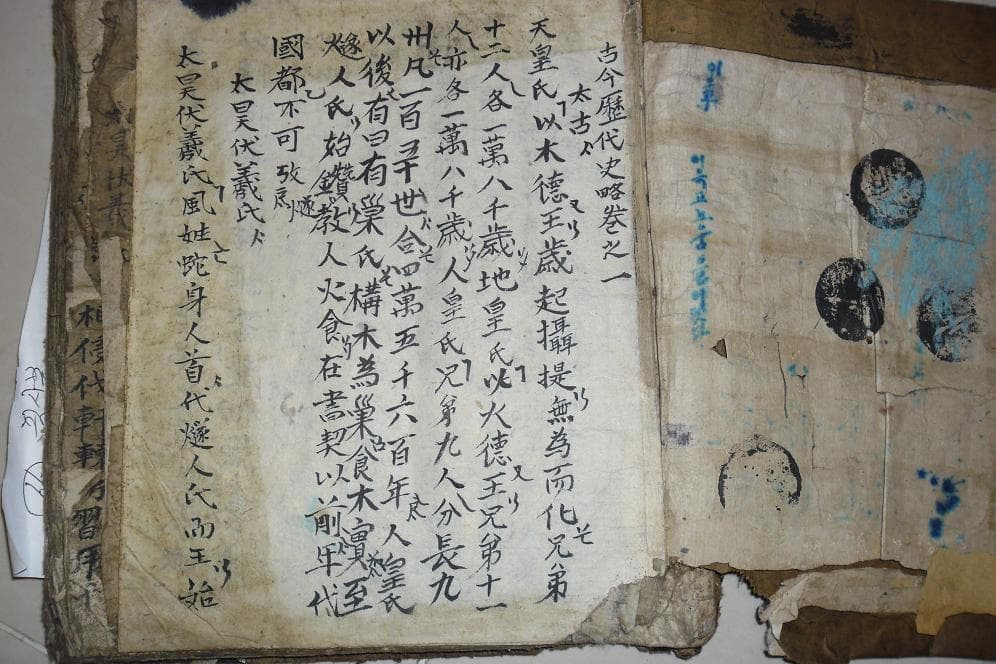 古今歷代史略卷之一
太古
天皇氏以木德王歲起攝提無為而化兄弟
十二人各一萬八千歲地皇氏以火德王兄弟十一
人亦各一萬八千歲人皇氏兄弟九人分長九
州凡一百五十世合四萬五千六百年人皇氏
以後有曰有樔氏構木為巢食木實至
燧人氏始鑽燧教人火食在書契以前年代
國都不可攷
太昊伏羲氏
太昊伏羲氏風姓蛇身人首代燧人氏而王始
相侵代軒轅 習用